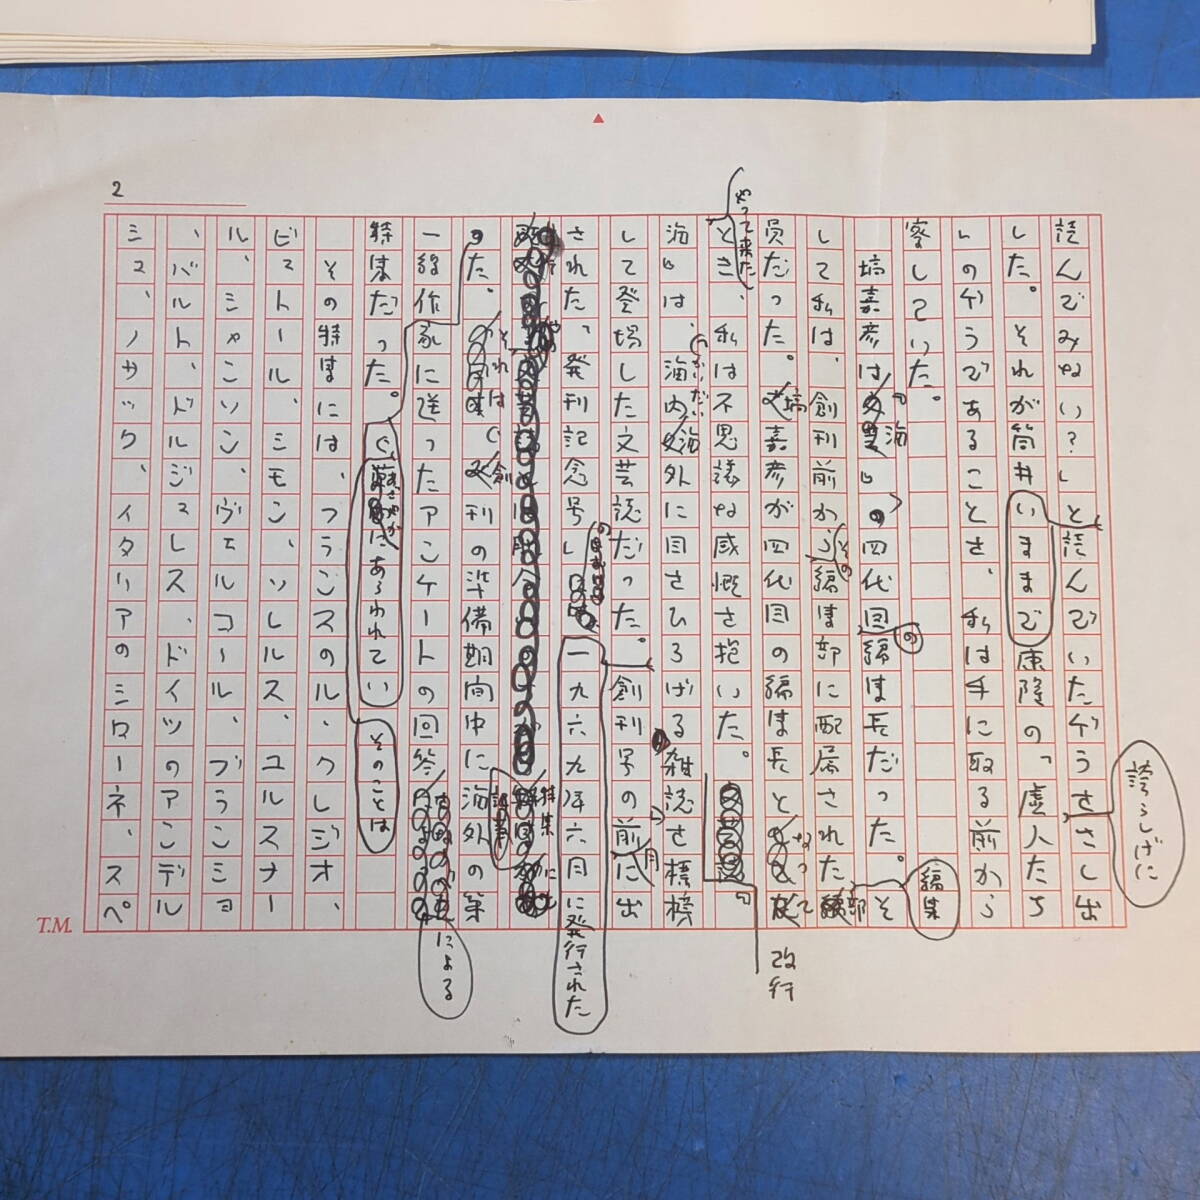 2
読んでみない?」と読んでいたようさし出
誇らしげに
した。それが筒井康隆の「虚人たち
いままで
」のようであることを、私は手に取る前から
察していた。
塙嘉彦は『海』の四代目の編集長だった。そ
編集
して私は、創刊前からその編集部に配属された
部
員だった。塙嘉彦が四代目の編集長となって
やって来た
とき、私は不思議な感慨を抱いた。
改行
海』は、海内海外に目をひろげる雑誌を標榜
(かいだい)
して登場した文芸誌だった。創刊号の前に出
月
された「発刊記念号」
一九六九年六月に発行された
特集
た。それは創刊の準備期間中に海外の第
一線作家に送ったアンケートの回答による
特集だった。
にあらわれてい
そのことは
その特集には、フランスのル・クレジオ、
ビュトール、シモン、ソレルス、ユルスナー
ル、シャンソン、ヴェルコール、ブランショ
、バルト、ドルジュレス、ドイツのアンデル
シュ、ノサック、イタリアのシローネ、スペ
T.M.